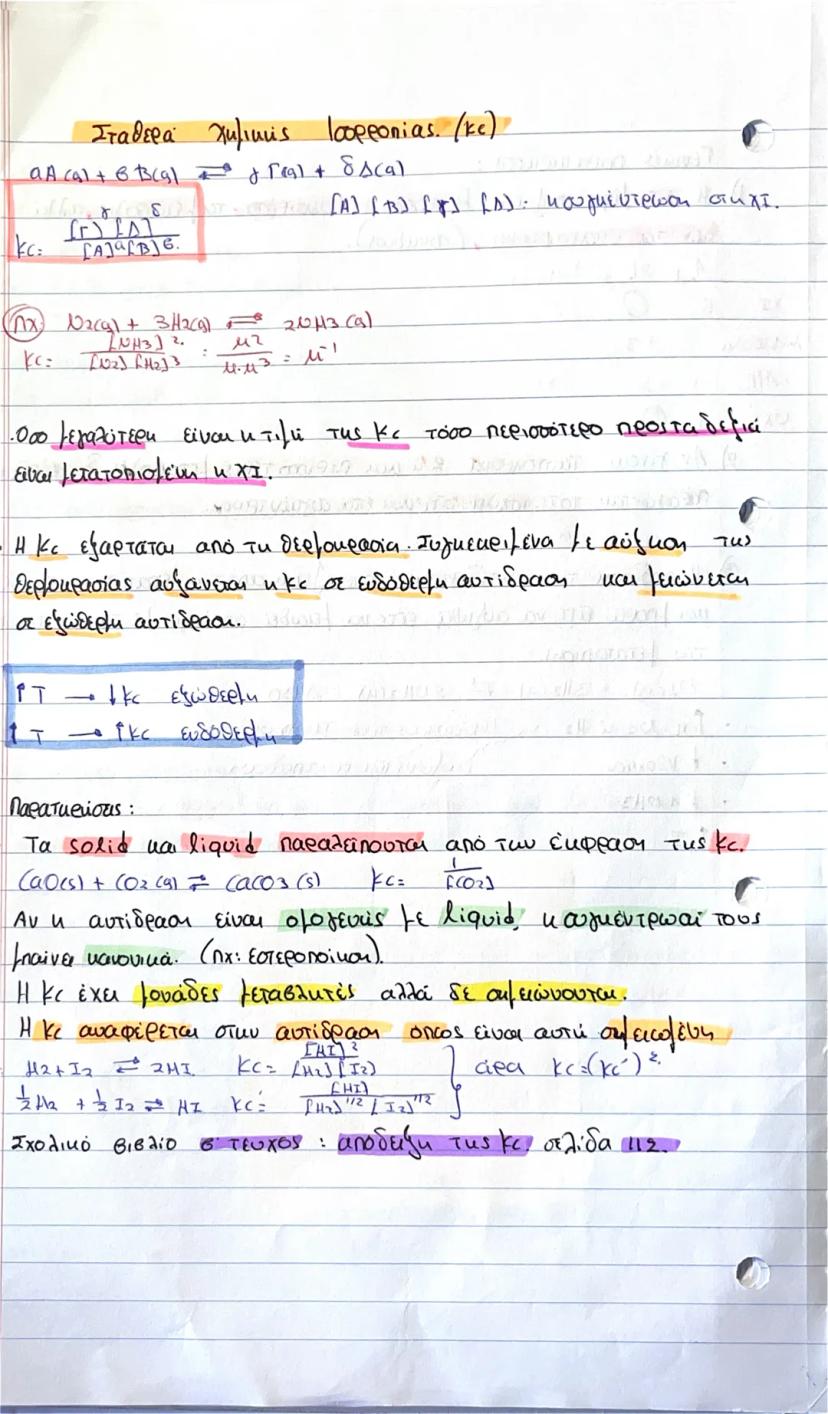 Σταθερά χημικής ισορροπίας. (Kc)
αA(g) + βB(g) ⇌ γΓ(g) + δΔ(g)
Kc = [Γ]^γ [Δ]^δ / [A]^α [B]^β. [A] [B] [Γ] [Δ]: η συγκέντρωση στη ΧΙ.
πχ N2(g) + 3H2(g) ⇌ 2NH3(g)
Kc = [NH3]^2 / [N2] [H2]^3 : M^2 / M·M^3 = M^-1
·Όσο μεγαλύτερη είναι η τιμή της Kc τόσο περισσότερο προς τα δεξιά
είναι μετατοπισμένη η ΧΙ.
· Η Kc εξαρτάται από τη θερμοκρασία. Συγκεκριμένα με αύξηση της
θερμοκρασίας αυξάνεται η Kc σε ενδόθερμη αντίδραση και μειώνεται
σε εξώθερμη αντίδραση.
↑T → ↓Kc εξώθερμη
↑T → ↑Kc ενδόθερμη
Παρατηρήσεις:
Τα solid και liquid παραλείπονται από την έκφραση της Kc.
CaO(s) + CO2(g) ⇌ CaCO3(s) Kc = 1 / [CO2]
Αν η αντίδραση είναι ομογενής με liquid, η συγκέντρωσή τους
μπαίνει κανονικά. (πχ: εστεροποίηση).
Η Kc έχει μονάδες μεταβλητές αλλά δε σημειώνονται.
Η Kc αναφέρεται στην αντίδραση όπως είναι αυτή σημειωμένη
H2 + I2 ⇌ 2HI Kc = [HI]^2 / [H2] [I2]
½H2 + ½I2 ⇌ HI Kc' = [HI] / [H2]^1/2 [I2]^1/2 } άρα Kc = (Kc')^2.
Σχολικό βιβλίο β' τεύχος : απόδειξη της Kc. σελίδα 112.